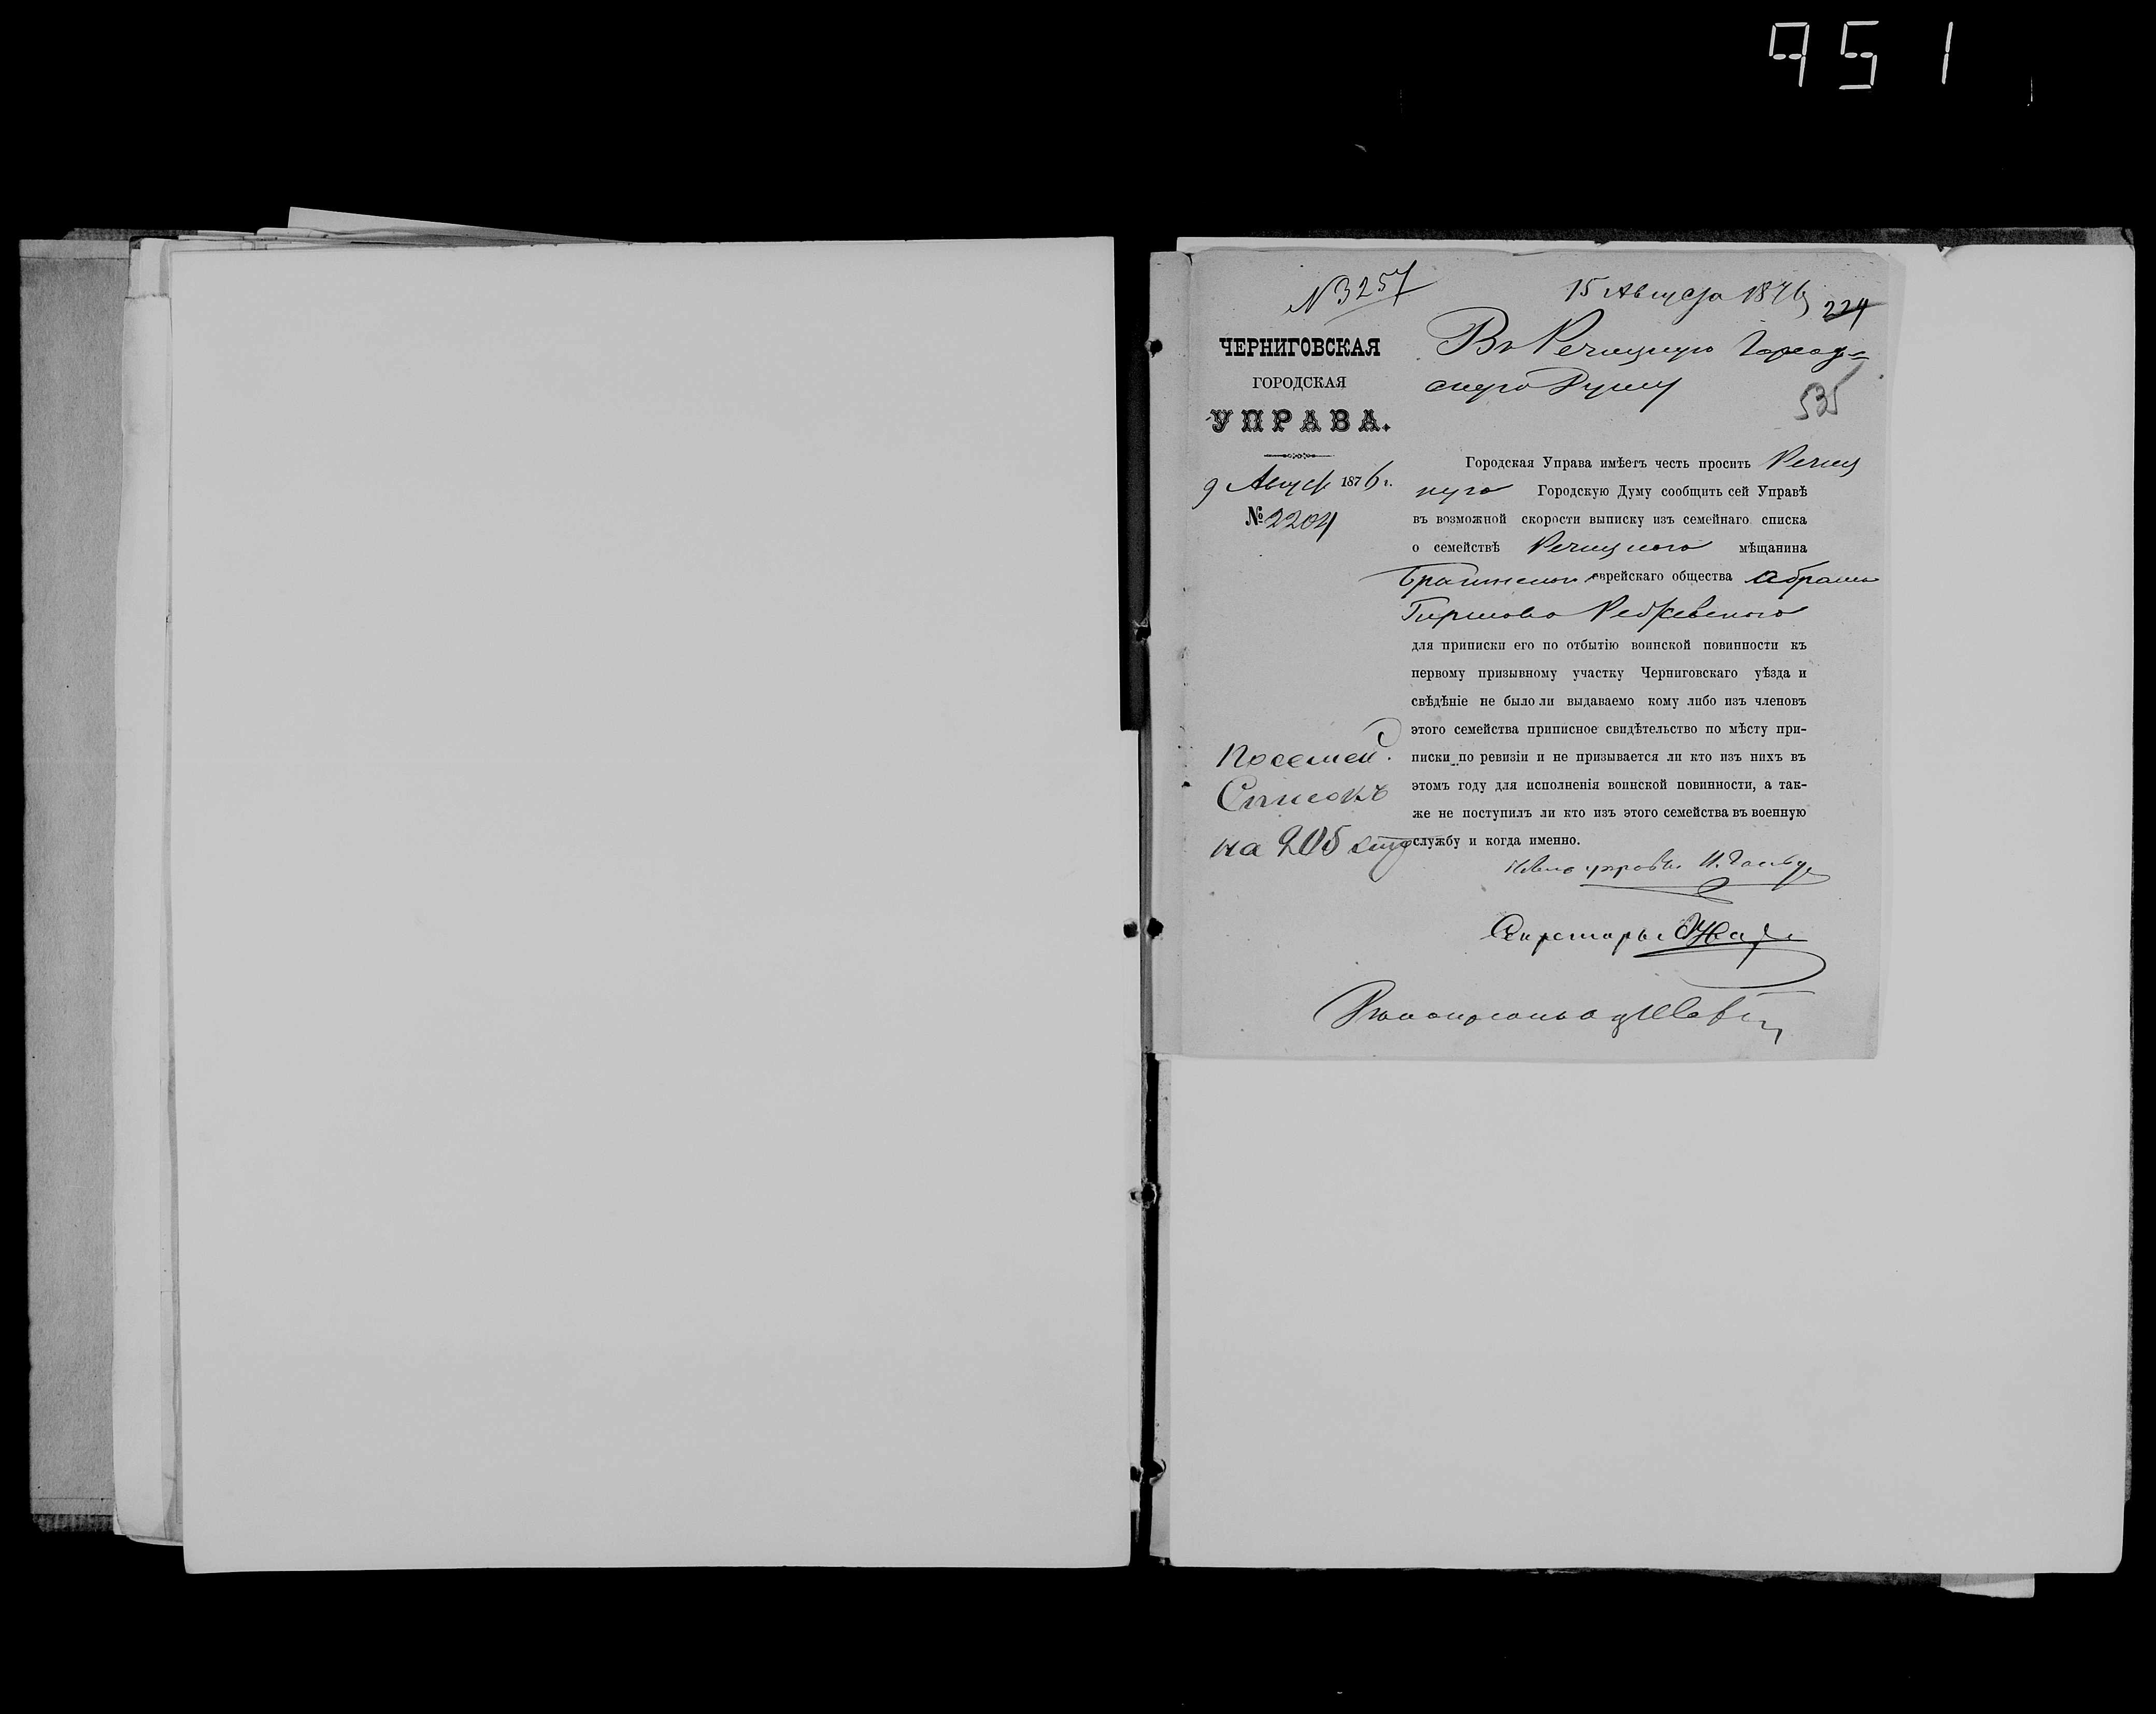 951
N 3257
15 Августа 1876
224
ЧЕРНИГОВСКАЯ
ГОРОДСКАЯ
УПРАВА.
9 Август 1876 г.
№ 2204
Въ Речицкую Город=
скую Думу
535
Городская Управа имѣетъ честь просить Речиц
кую Городскую Думу сообщить сей Управѣ
въ возможной скорости выписку изъ семейнаго списка
о семействѣ Речицкого мѣщанина
еврейскаго общества Абрама
Гиршова
для приписки его по отбытію воинской повинности къ
первому призывному участку Черниговскаго уѣзда и
свѣдѣніе не было ли выдаваемо кому либо изъ членовъ
этого семейства приписное свидѣтельство по мѣсту при-
писки по ревизіи и не призывается ли кто изъ нихъ въ
этомъ году для исполненія воинской повинности, а так-
же не поступилъ ли кто изъ этого семейства въ военную
службу и когда именно.
Посемей.
Списокъ
на 205
Секретарь